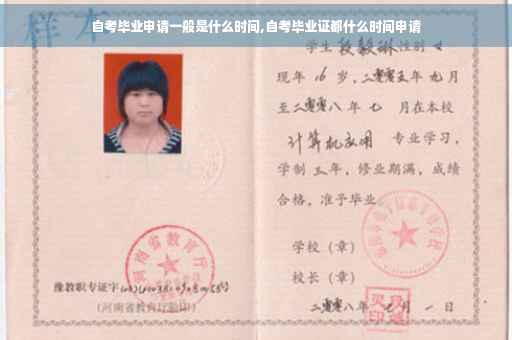 自考毕业申请一般是什么时间,自考毕业证都什么时间申请
样本
学生段毅琳性别女
现年16岁，二零零五年九月
至二零零八年七月在本校
计算机应用 专业学习，
学制三年，修业期满，成绩
合格，准予毕业
学校（章）
校长（章）
二零零八年七月一日
河南省教育厅
豫教职专证字
（河南省教育厅验印）